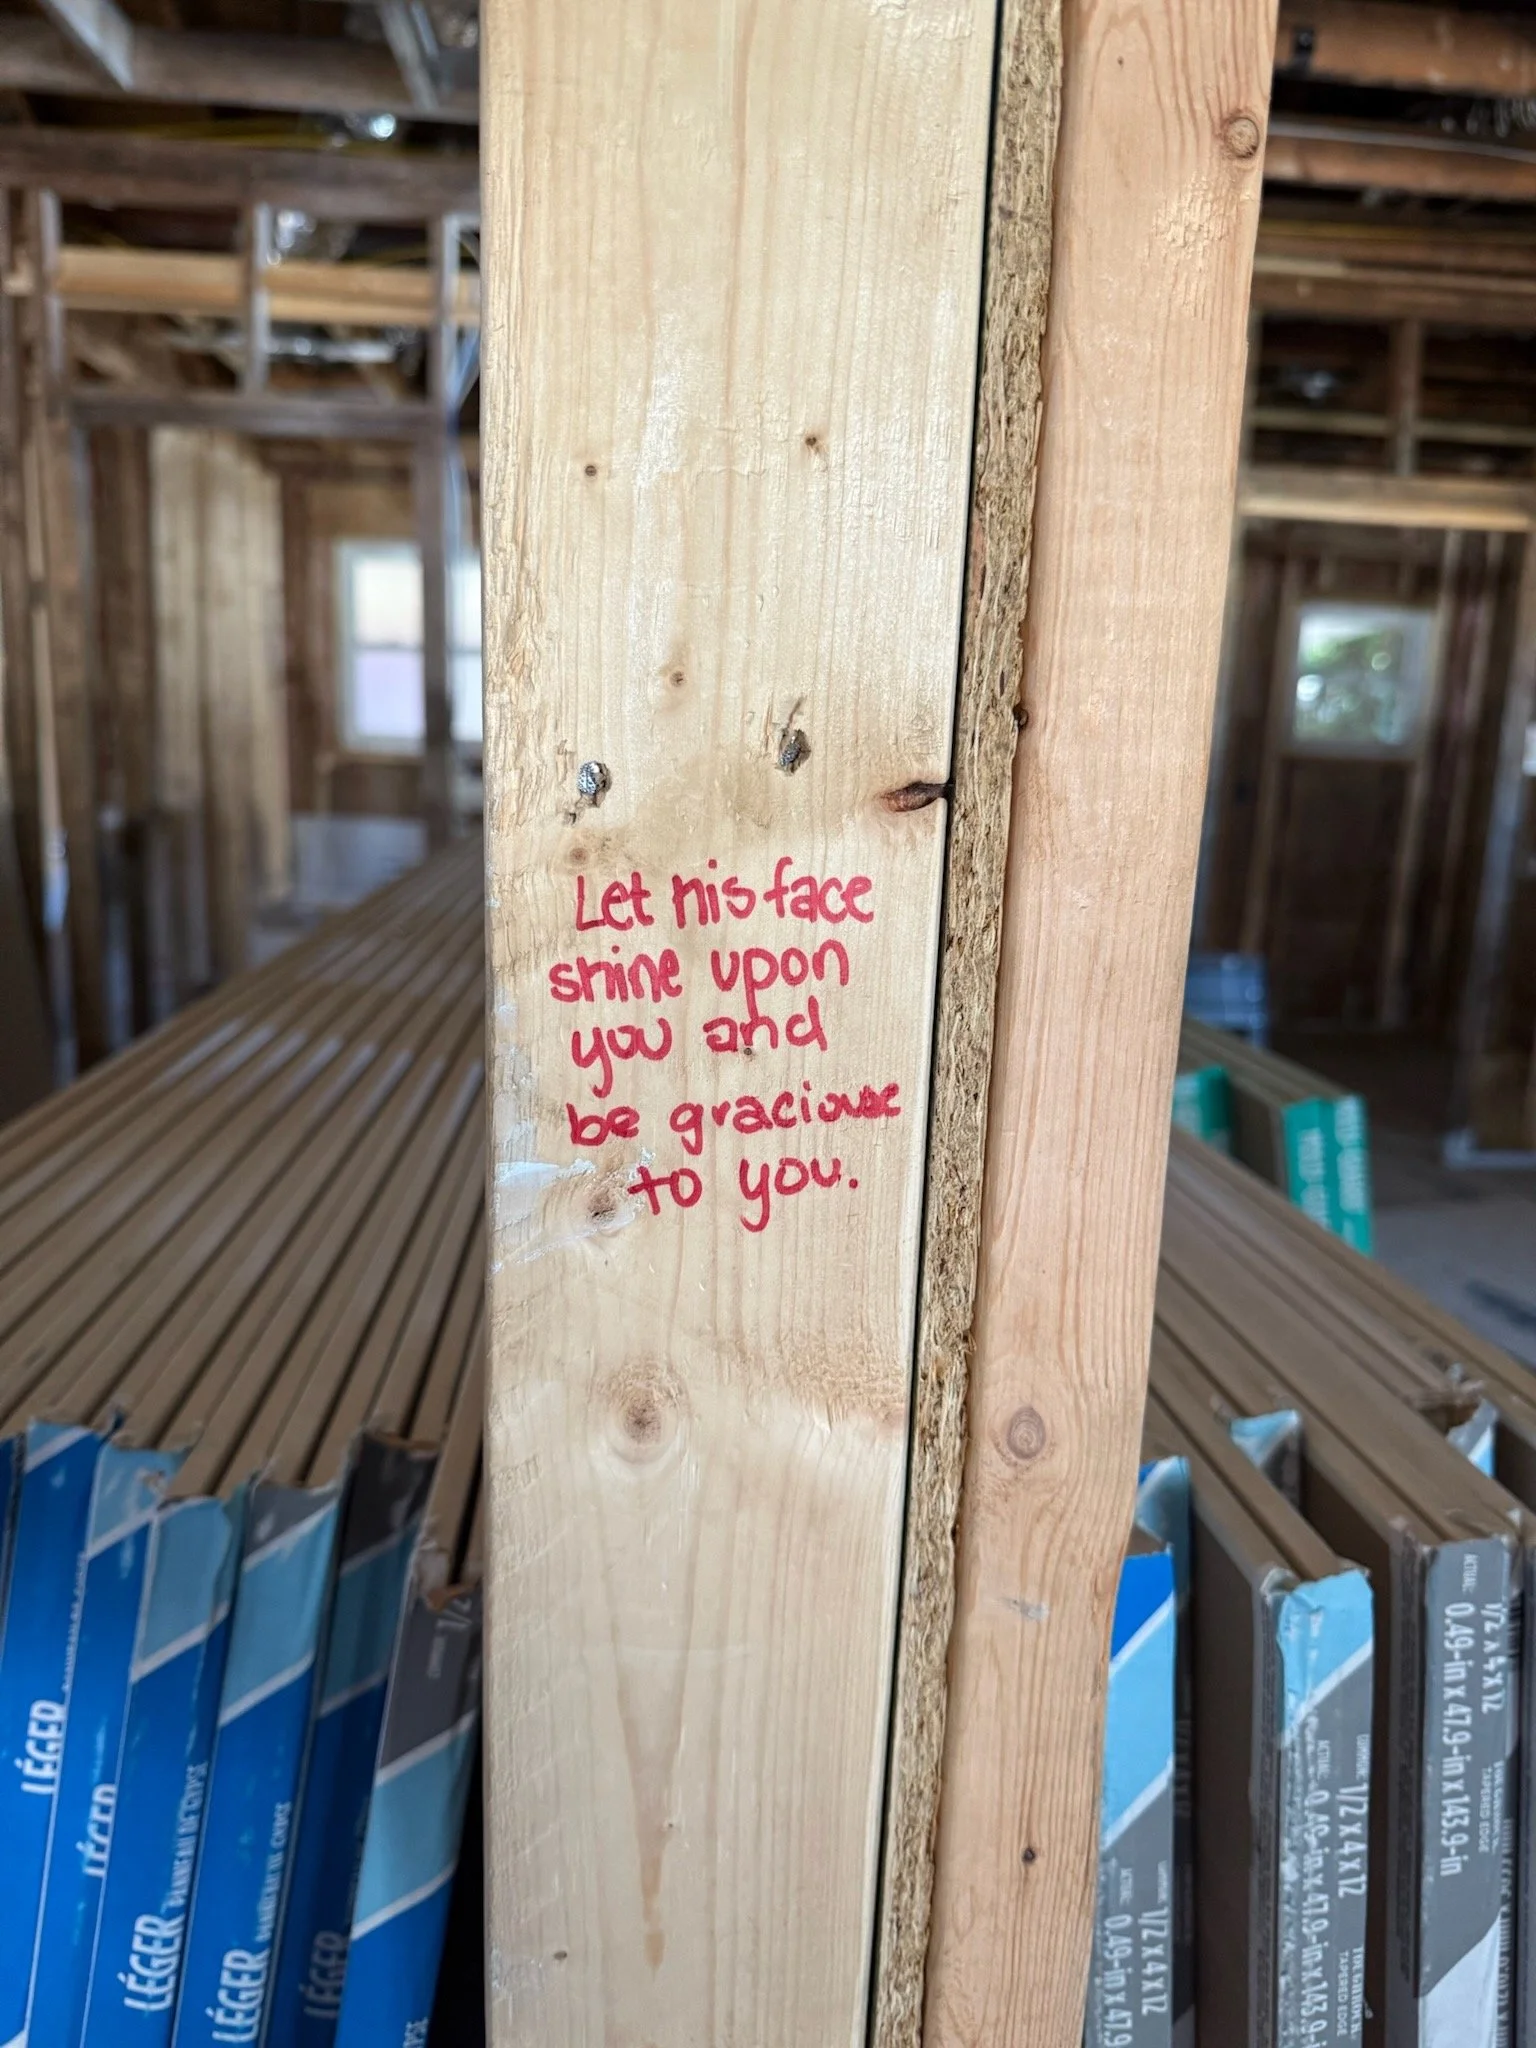 Let his face
shine upon
you and
be gracious
to you.
LÉGER
LÉGER
LÉGER
LÉGER
LÉGER
1/2
1/2 X 4 X 12
0.49-in x 47.9
1/2 X 4 X 12
ACTUAL: 0.49-in x 47.9-in x 143.9-in
TAPERED EDGE
1/2 X 4 X 12
ACTUAL: 0.49-in x 47.9-in x 143.9-in
TAPERED EDGE